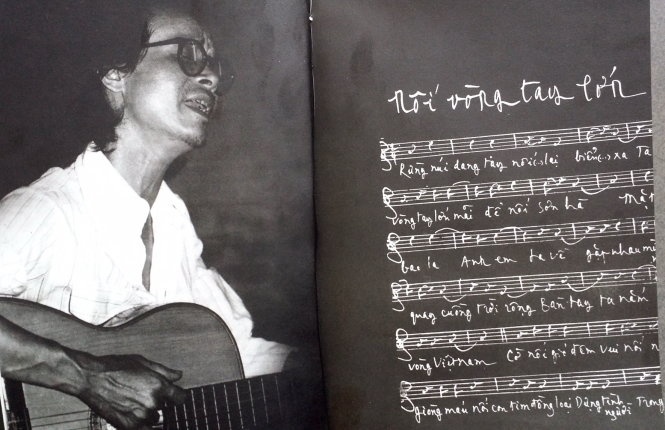 nối vòng tay lớn
Rừng núi dang tay nối(..)lại biển(..)xa Ta
vòng tay lớn mãi để nối sơn hà Mặt
bao la Anh em ta về gặp nhau
quay cuồng trời rộng Bàn tay ta nắm
vòng Việtnam Cờ nối gió đêm vui nối
giòng máu nối con tim đồng loại Dựng tình người Trong